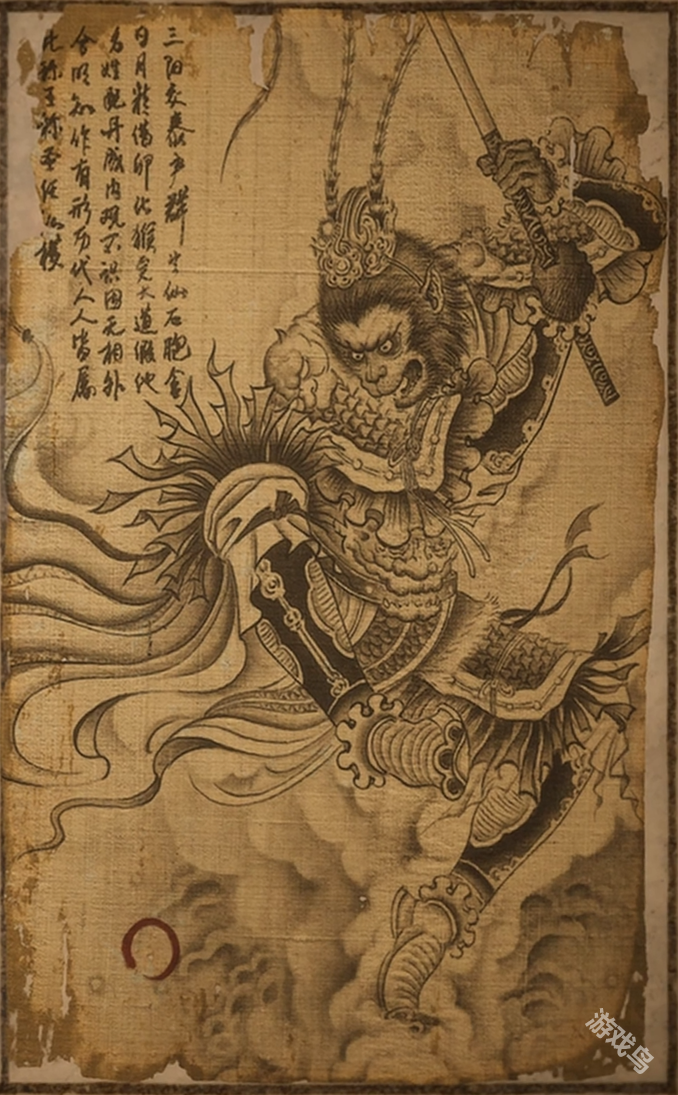 三阳交泰产群生仙石胞含
日月精借卵化猴完大道假他
名姓配丹成内观不识因无相外
合明知作有形历代人人皆属
此称王称圣任纵横
游戏鸟